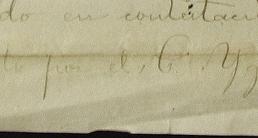 do en contestaci
to por el C. Yg